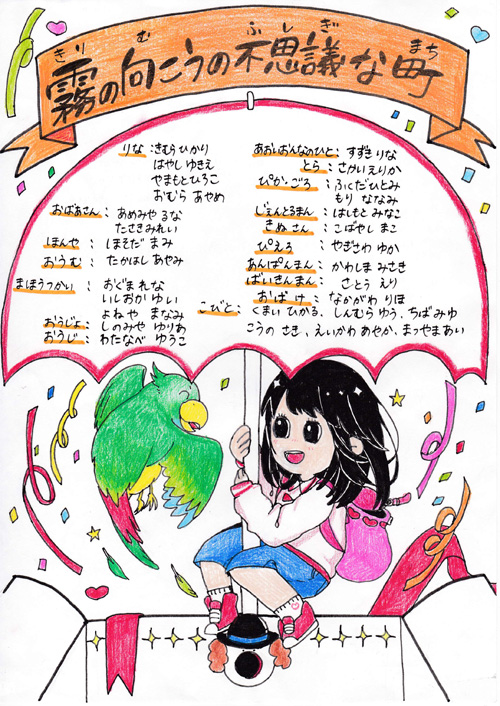 霧の向こうの不思議な町
きり む ふしぎ まち
りな：きむら ひかり
はやし ゆきえ
やまもと ひろこ
おむら あやめ
おばあさん：あめみや るな
たさき みれい
ほんや：ほそだ まみ
おうむ：たかはし あやみ
まほうつかい：おぐま れな
いしおか ゆい
よねや まなみ
おうじょ：しのみや ゆりあ
おうじ：わたなべ ゆうこ
あおいおんなのひと：すずき りな
とら：さかい えりか
ぴかごろ：ふくだ ひとみ
もり ななみ
じぇんとるまん：はしもと みなこ
きぬさん：こばやし まこ
ぴえろ：やぎさわ ゆか
あんぱんまん：かわしま みさき
ばいきんまん：さとう えり
おばけ：なかがわ りほ
こびと：くまい ひかる、しんむら ゆう、ちば みゆ
こうの さき、えいかわ あやか、まつやま あい